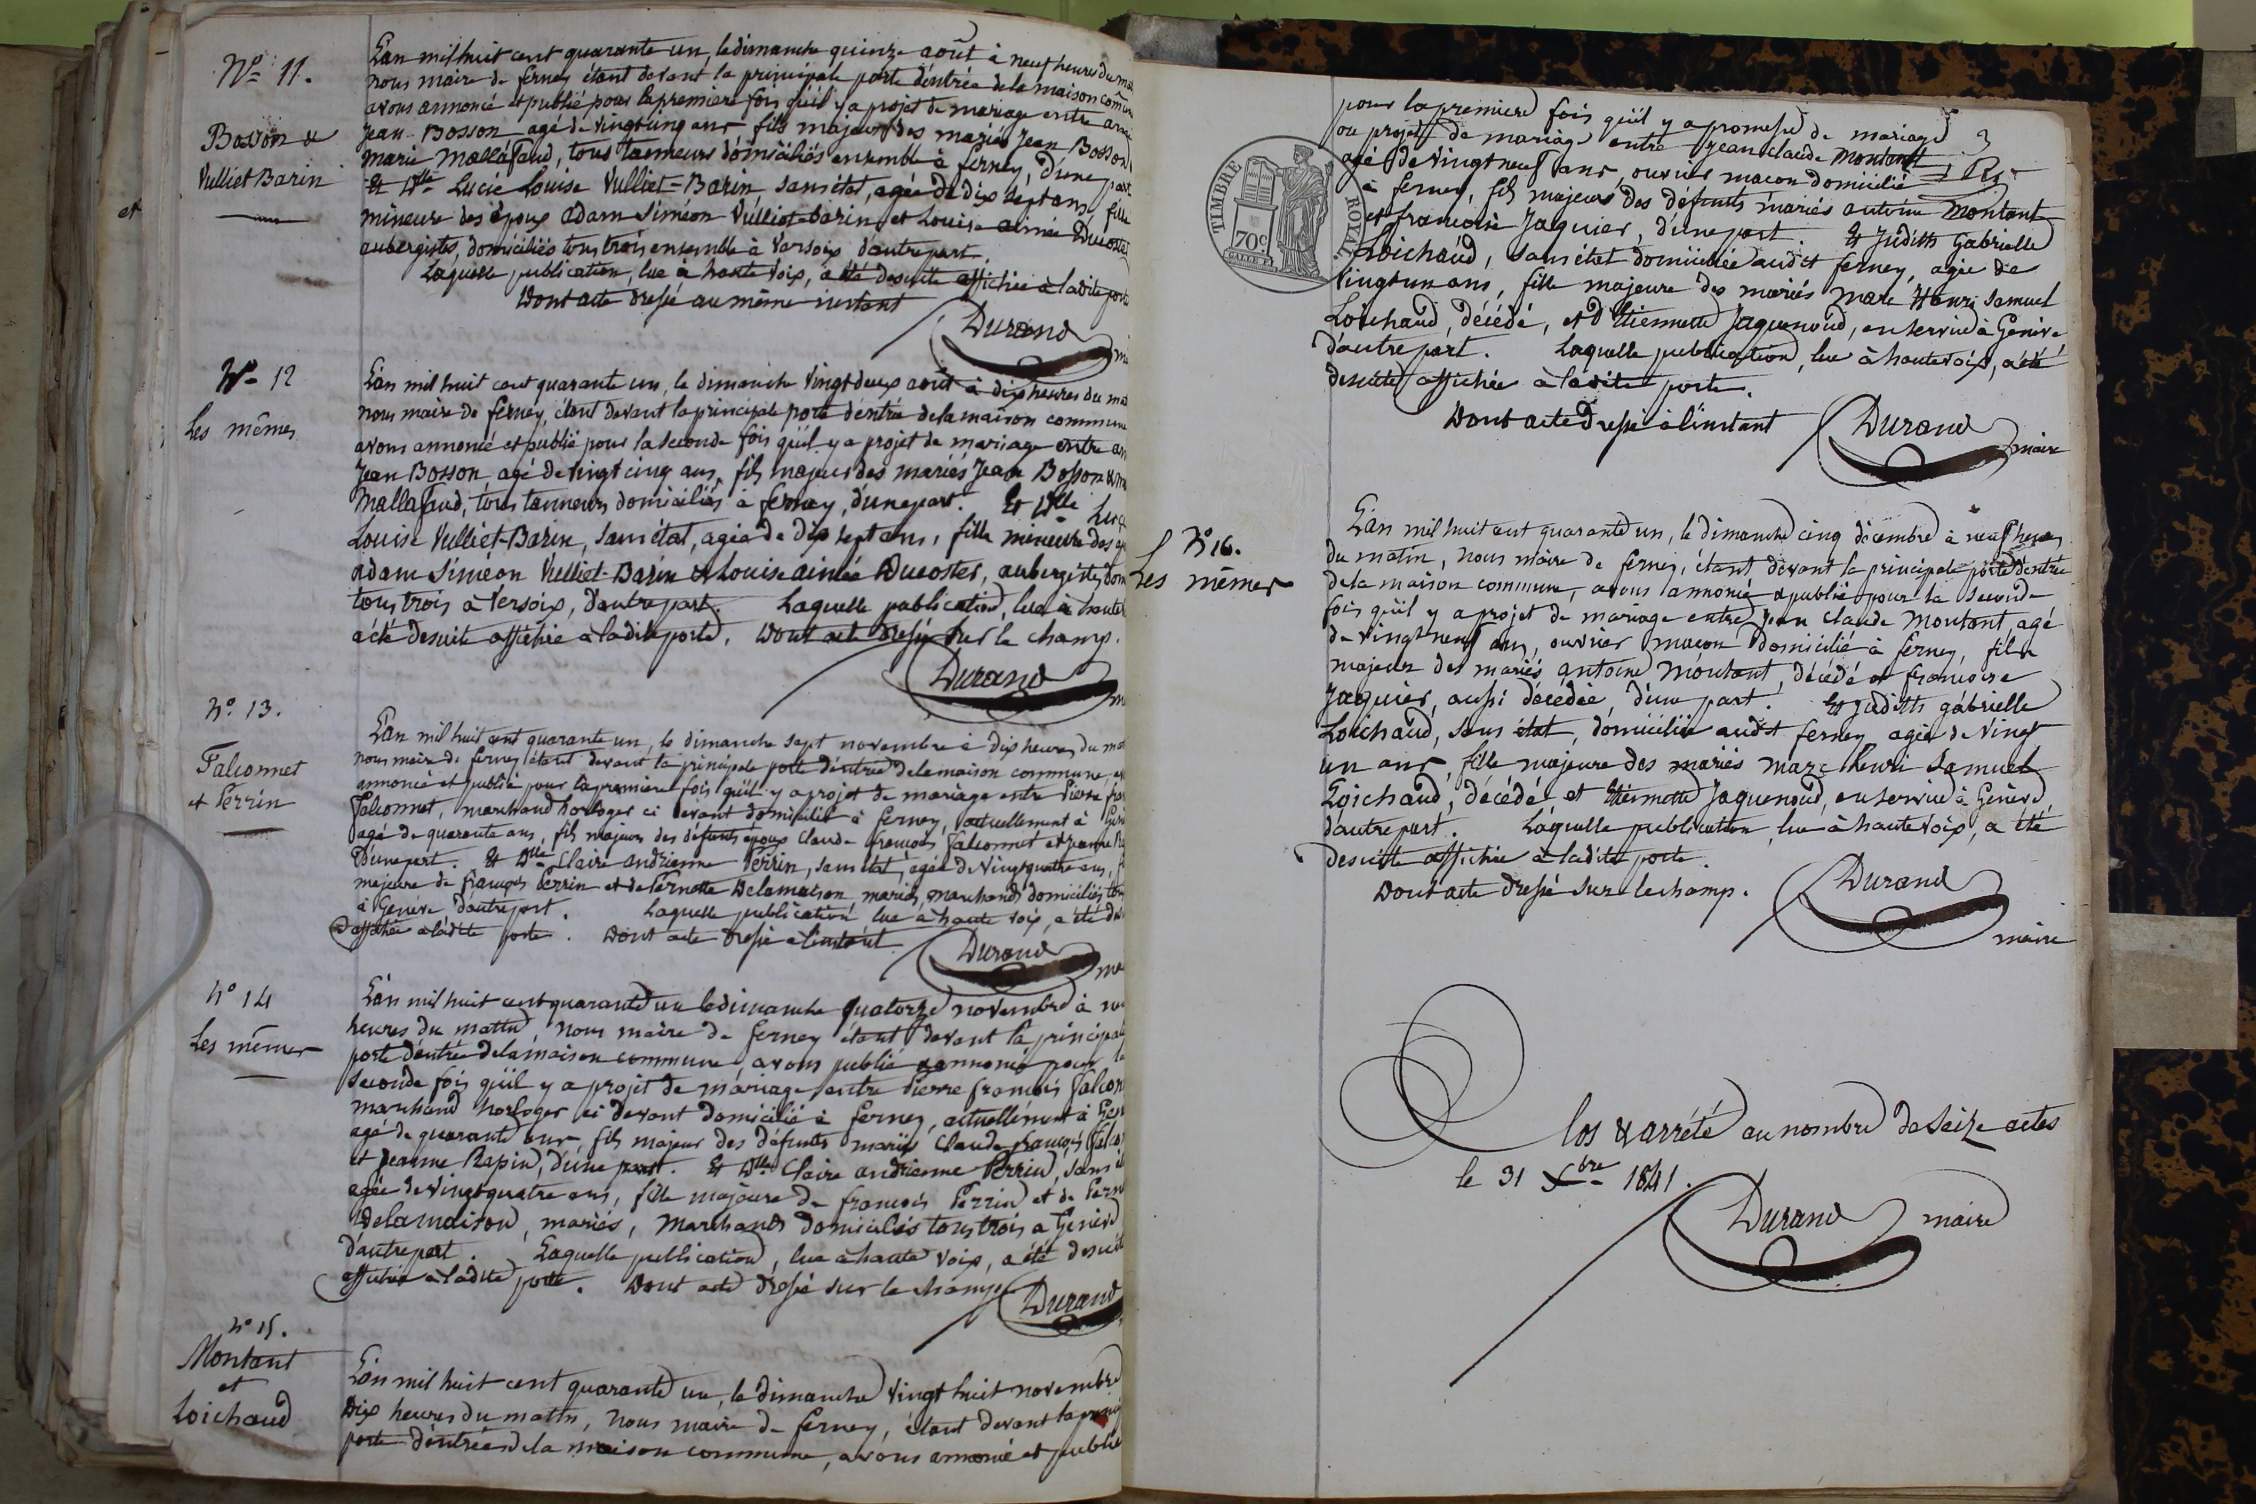 Nº 11.
Bosson &
Vulliet Barin
et
L'an mil huit cent quarante un, le dimanche quinze août à neuf heures du
nous maire de ferney étant devant la principale porte d'entrée de la maison
avons annoncé et publié pour la premiere fois qu'il y a projet de mariage entre
Jean Bosson agé de vingt cinq ans, fils majeur des mariés Jean Bosson
marie Mallafaud, tous tanneurs domiciliés ensemble à ferney, d'une part
Et Dlle Lucie Louise Vulliet-Barin sans état, agée de dix sept ans, fille
mineure des époux adam Siméon Vulliet-Barin et Louise aimée Ducoster
aubergistes, domiciliés tous trois ensemble à Versoix d'autre part.
Laquelle publication, lue à haute voix, a été desuite affichée à ladite porte
Dont acte dressé au même instant
Durand
Nº 12
Les mêmes
L'an mil huit cent quarante un, le dimanche vingt deux août à dix heures du
nous maire de ferney, étant devant la principale porte d'entrée de la maison commune
avons annoncé et publié pour la seconde fois qu'il y a projet de mariage entre
Jean Bosson agé de vingt cinq ans, fils majeur des mariés Jean Bosson &
Mallafaud, tous tanneurs domiciliés à ferney, d'une part. Et Dlle
Louise Vulliet-Barin, sans état, agée de dix sept ans, fille mineure des
adam Siméon Vulliet-Barin & Louise aimée Ducoster, aubergistes,
tous trois à Versoix, d'autre part. Laquelle publication, lue à haute
a été desuite affichée à ladite porte. Dont acte dressé sur le champ.
Durand
Nº 13.
Falconnet
et Perrin
L'an mil huit cent quarante un, le dimanche sept novembre à dix heures du
nous maire de ferney étant devant la principale porte d'entrée de la maison commune,
annoncé et publié pour la premiere fois qu'il y a projet de mariage entre Pierre
Falconnet, marchand horloger ci devant domicilié à ferney, actuellement à
agé de quarante ans, fils majeur des défunts époux Claude françois falconnet et Jeanne
d'une part. Et Dlle Claire andrienne Perrin, sans état, agée de vingt quatre ans,
majeure de françois Perrin et de Pernette Delamaison mariés, marchands domiciliés
à Genève d'autre part. Laquelle publication lue à haute voix, a été
affichée à ladite porte. Dont acte dressé à l'instant
Durand
Nº 14
Les mêmes
L'an mil huit cent quarante un le dimanche quatorze novembre à
heures du matin, nous maire de ferney étant devant la principale
porte d'entrée de la maison commune, avons publié & annoncé pour la
seconde fois qu'il y a projet de mariage entre Pierre françois falconnet
marchand horloger ci devant domicilié à ferney, actuellement à
agé de quarante ans, fils majeur des défunts mariés Claude françois
et Jeanne Rapin, d'une part. Et Dlle Claire andrienne Perrin, sans
agée de vingt quatre ans, fille majeure de françois Perrin et de
Delamaison, mariés, marchands domiciliés tous trois a Genève
d'autre part. Laquelle publication, lue à haute voix, a été desuite
affichée à ladite porte. Dont acte dressé sur le champ
Durand
Nº 15.
Montant
et
Loichaud
L'an mil huit cent quarante un, le dimanche vingt huit novembre
dix heures du matin, nous maire de ferney, étant devant la
porte d'entrée de la maison commune, avons annoncé et publié
pour la premiere fois qu'il y a promesse de mariage
ou projet de mariage entre Jean Claude Montant
agé de vingt neuf ans, ouvrier maçon domicilié
à ferney, fils majeur des défunts mariés antoine Montant
et françoise Jaquier, d'une part. Et Judith Gabrielle
Loichaud, sans état domiciliée audit ferney, agée de
vingt un ans, fille majeure des mariés Marc Henri Samuel
Loichaud, décédé, et d'Etiennette Jaquenoud, en service à Genève
d'autre part. Laquelle publication, lue à haute voix, a été
desuite affichée à ladite porte.
Dont acte dressé à l'instant
Durand
maire
TIMBRE ROYAL
70c
Nº 16.
Les mêmes
L'an mil huit cent quarante un, le dimanche cinq décembre à neuf heures
du matin, nous maire de ferney, étant devant la principale porte d'entrée
de la maison commune, avons annoncé & publié pour la seconde
fois qu'il y a projet de mariage entre Jean Claude Montant, agé
de vingt neuf ans, ouvrier maçon domicilié à ferney, fils
majeur des mariés antoine Montant, décédé et françoise
Jaquier, aussi décédée, d'une part. Et Judith gabrielle
Loichaud, sans état, domiciliée audit ferney agée de vingt
un ans, fille majeure des mariés marc henri Samuel
Loichaud, décédé, et Etiennette Jaquenoud, en service à Genève,
d'autre part. Laquelle publication, lue à haute voix, a été
desuite affichée à ladite porte.
Dont acte dressé sur le champ.
Durand
maire
Clos & arrêté au nombre de seize actes
le 31 Xbre 1841.
Durand maire